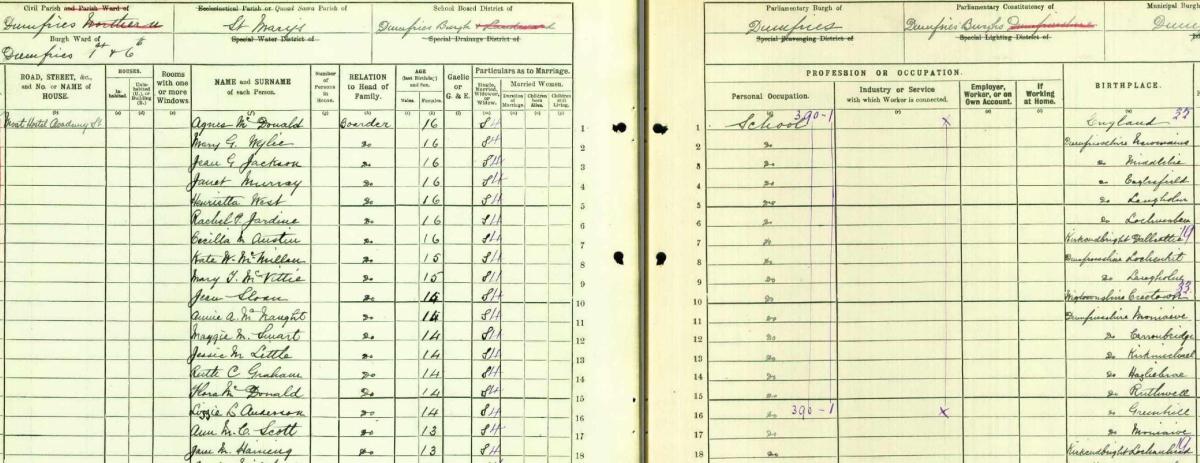 Civil Parish and Parish Ward of
Dumfries Northern
Ecclesiastical Parish or Quoad Sacra Parish of
St Mary's
School Board District of
Dumfries Burgh & Landward
Burgh Ward of
Dumfries 1st & 6th
Special Water District of
Special Drainage District of
Parliamentary Burgh of
Dumfries
Parliamentary Constituency of
Dumfries Burghs Dumfriesshire
Municipal Burgh
Dum
Special Scavenging District of
Special Lighting District of
ROAD, STREET, &c., and No. or NAME of HOUSE.
HOUSES.
Inhabited.
Uninhabited (U.), or Building (B.).
Rooms with one or more Windows.
NAME and SURNAME of each Person.
Number of Persons in House.
RELATION to Head of Family.
AGE (last Birthday) and Sex.
Males.
Females.
Gaelic or G. & E.
Particulars as to Marriage.
Single, Married, Widower, or Widow.
Married Women.
Duration of Marriage.
Children born Alive.
Children still Living.
PROFESSION OR OCCUPATION.
Personal Occupation.
Industry or Service with which Worker is connected.
Employer, Worker, or on Own Account.
If Working at Home.
BIRTHPLACE.
Moat Hostel Academy St. Agnes McDonald Boarder 16 S 1 1 School 390-1 x England 35
Mary G. Wylie Do 16 S 2 2 Do Dumfriesshire
Jean G. Jackson Do 16 S 3 3 Do Do Middlebie
Janet Murray Do 16 S 4 4 Do Do Eaglesfield
Henrietta West Do 16 S 5 5 Do Do Langholm
Rachel P. Jardine Do 16 S 6 6 Do Do Lochmaben
Cecilia M. Austin Do 16 S 7 7 Do Kirkcudbright Dalbeattie
Kate W. McMillan Do 15 S 8 8 Do Dumfriesshire Lochenkit
Mary T. McVittie Do 15 S 9 9 Do Do Langholm
Jean Sloan Do 15 S 10 10 Do Wigtownshire Creetown 33
Annie A. McNaught Do 14 S 11 11 Do Dumfriesshire Moniaive
Maggie M. Smart Do 14 S 12 12 Do Do Carronbridge
Jessie M. Little Do 14 S 13 13 Do Do Kirkmichael
Ruth C. Graham Do 14 S 14 14 Do Do
Flora McDonald Do 14 S 15 15 Do Do Ruthwell
Lizzie L. Anderson Do 14 S 16 16 Do 390-1 x Do Greenhill
Ann M. C. Scott Do 13 S 17 17 Do Do Moniaive
Jane M. Do 13 S 18 18 Do Kirkcudbright